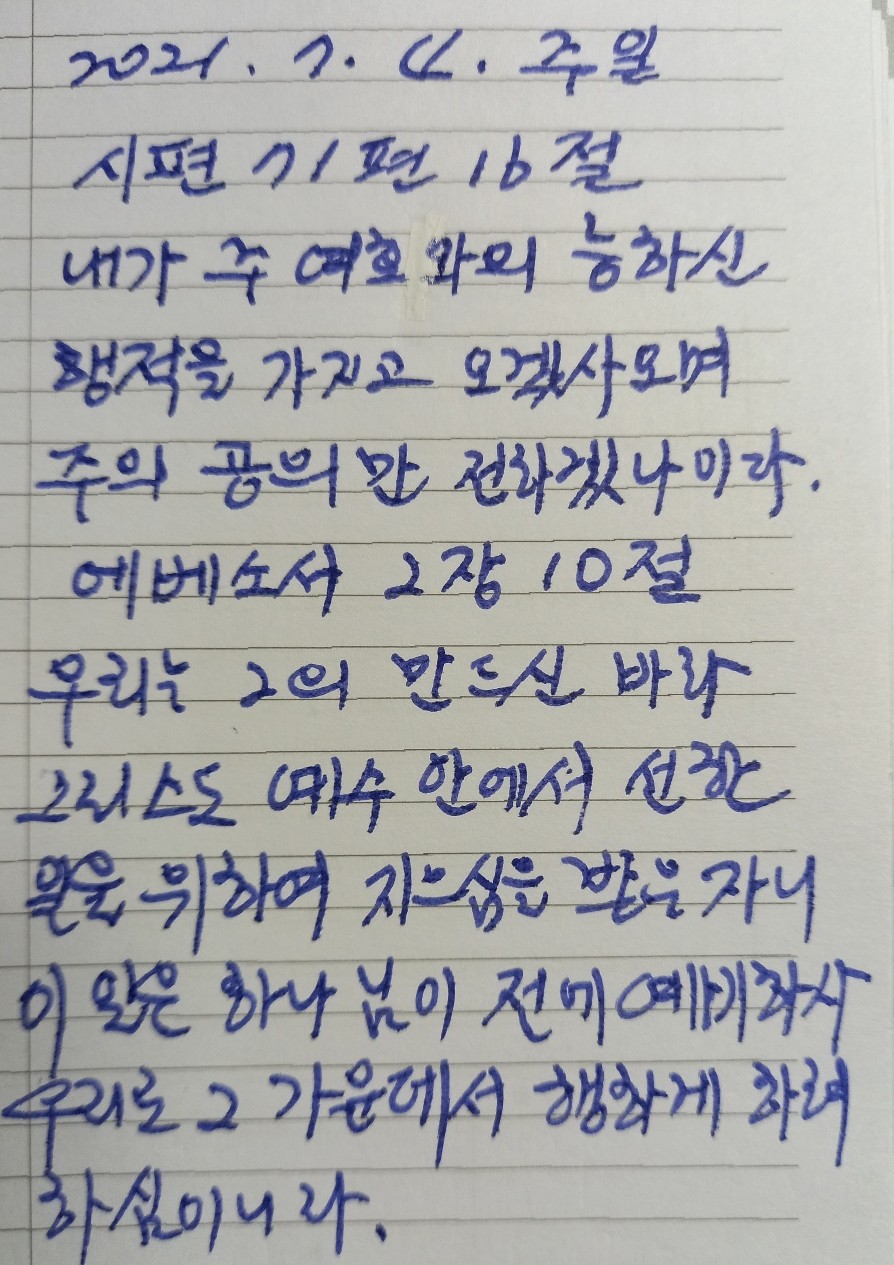 2021. 7. 4. 주일
시편 71편 16절
내가 주 여호와의 능하신
행적을 가지고 오겠사오며
주의 공의만 전하겠나이다.
에베소서 2장 10절
우리는 그의 만드신 바라
그리스도 예수 안에서 선한
일을 위하여 지으심을 받은 자니
이 일은 하나님이 전에 예비하사
우리로 그 가운데서 행하게 하려
하심이니라.